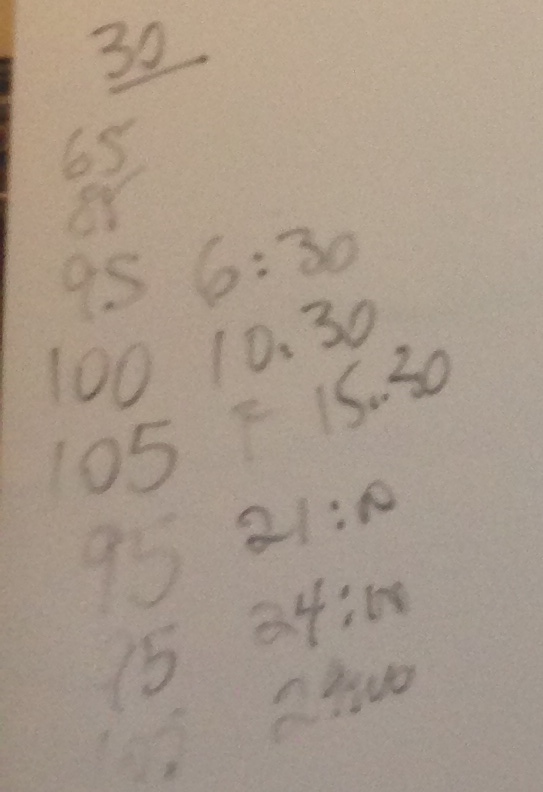 30
65
85
95 6:30
100 10.30
105 15..30
95 21:00
75 24:00